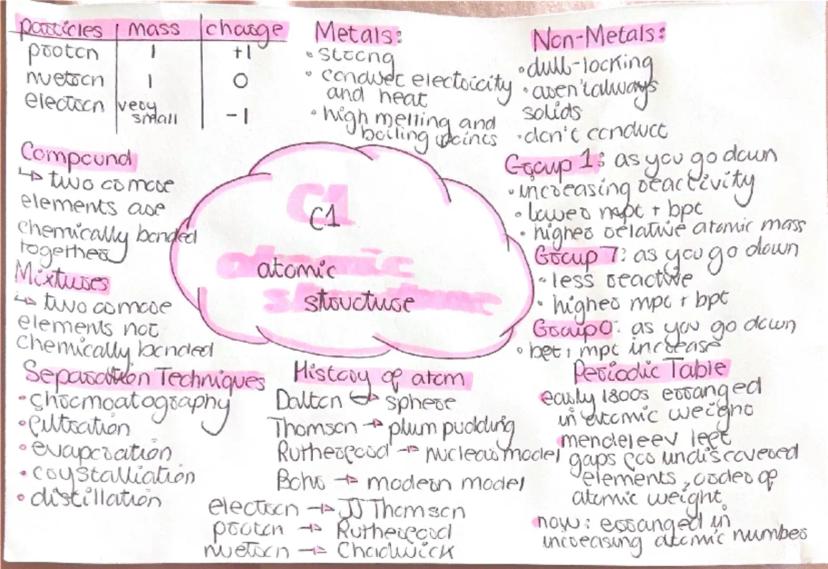 particles mass charge
proton 1 +1
nuetron 1 0
electron very small -1
Metals:
• strong
• conduct electricity
and heat
• high melting and
boiling points
Non-Metals:
• dull-looking
• aren't always
solids
• don't conduct
Compound
↳ two or more
elements are
chemically bonded
together
Mixtures
↳ two or more
elements not
chemically bonded
C1
C1
atomic
structure
Group 1: as you go down
• increasing reactivity
• lower mpt + bpt
• higher relative atomic mass
Group 7: as you go down
• less reactive
• higher mpt + bpt
Group 0: as you go down
• bpt, mpt increase
Separation Techniques
• chromoatography
• filtration
• evaporation
• crystalliation
• distillation
History of atom
Dalton → sphere
Thomson → plum pudding
Rutherford → nuclear model
Bohr → modern model
electron → JJ Thomson
proton → Rutherford
nuetron → Chadwick
Periodic Table
early 1800s arranged
in atomic weight
mendeleev left
gaps for undiscovered
elements, order of
atomic weight
now: arranged in
increasing atomic number